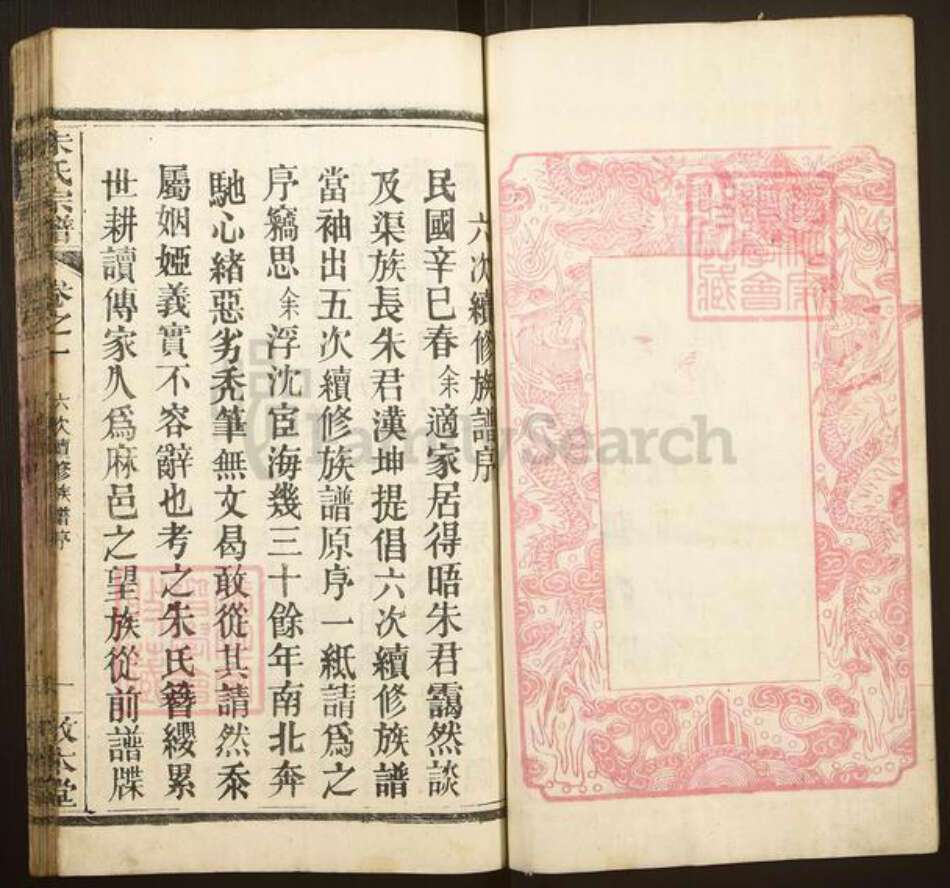 六次續修族譜序
民國辛巳春余適家居得晤朱君靄然談
及渠族長朱君漢坤提倡六次續修族譜
當袖出五次續修族譜原序一紙請爲之
序竊思余浮沈宦海幾三十餘年南北奔
馳心緒惡劣禿筆無文曷敢從其請然忝
屬姻婭義實不容辭也考之朱氏簪纓累
世耕讀傳家久爲麻邑之望族從前譜牒
朱氏宗譜 卷之一 六次續修族譜序 一 敦本堂
FamilySearch